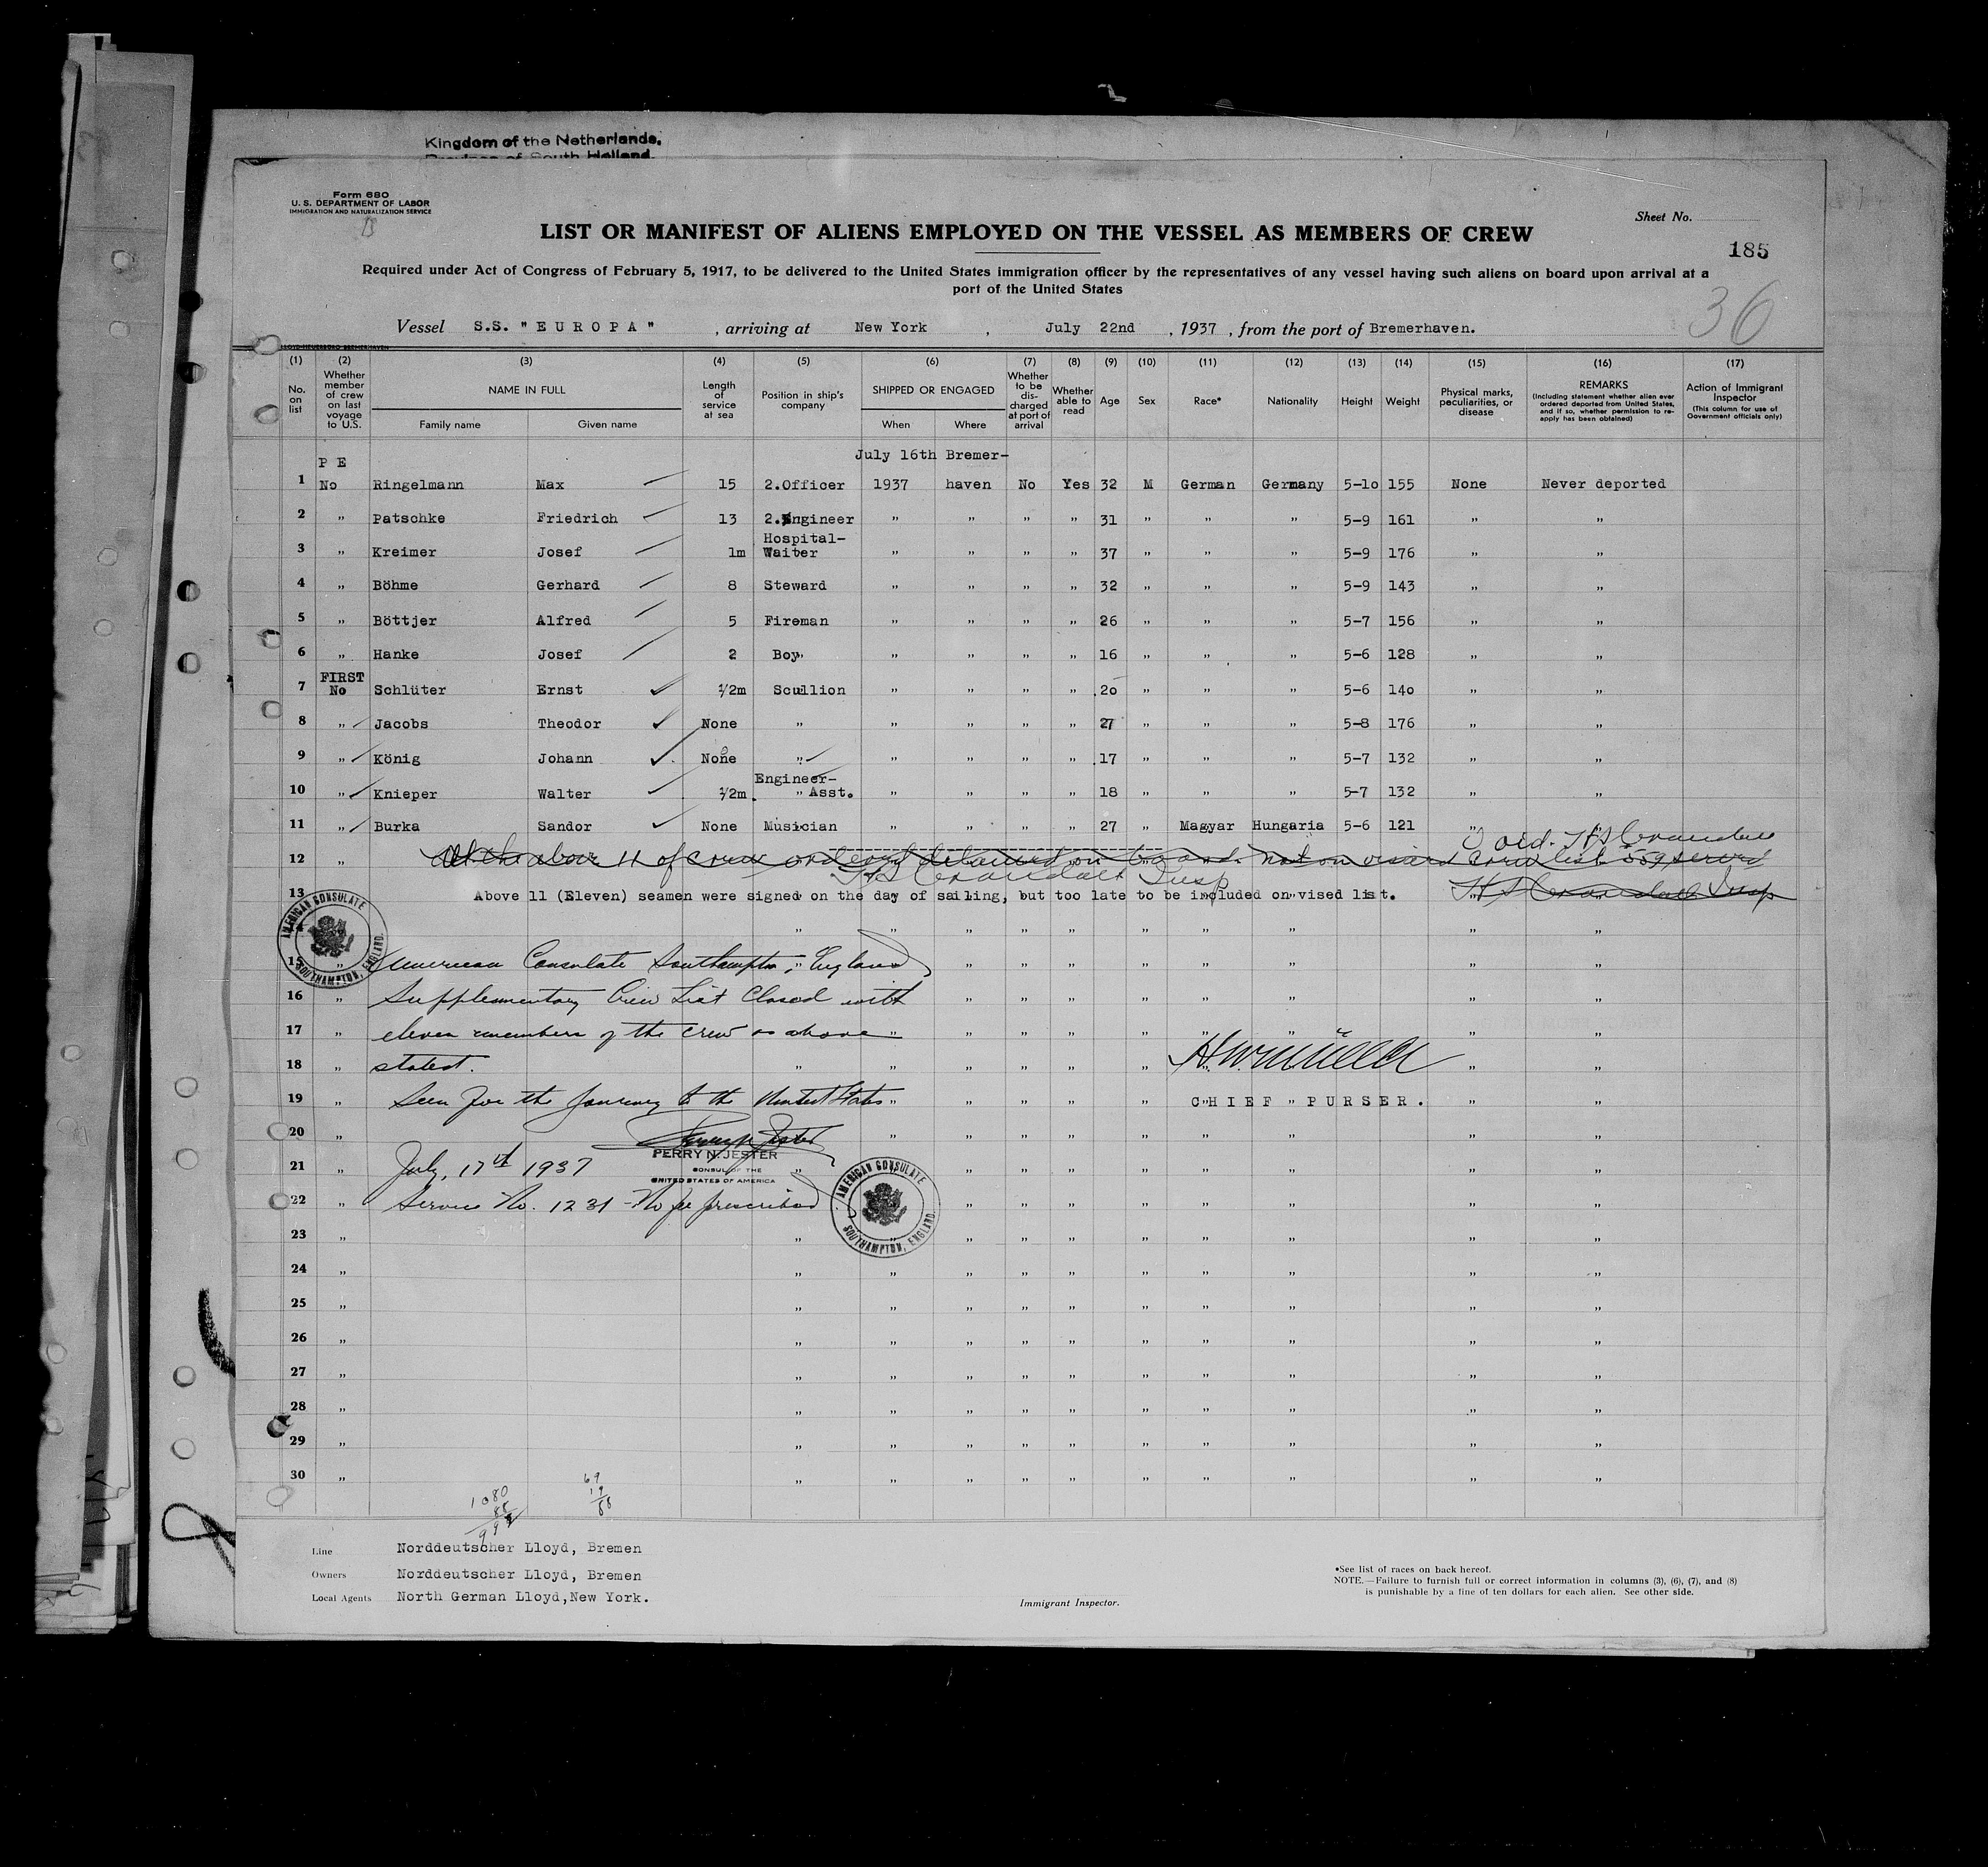 Kingdom of the Netherlands,
Province of South Holland.
Form 680
U. S. DEPARTMENT OF LABOR
IMMIGRATION AND NATURALIZATION SERVICE
Sheet No.
LIST OR MANIFEST OF ALIENS EMPLOYED ON THE VESSEL AS MEMBERS OF CREW
185
Required under Act of Congress of February 5, 1917, to be delivered to the United States immigration officer by the representatives of any vessel having such aliens on board upon arrival at a
port of the United States
36
Vessel S.S. "EUROPA" , arriving at New York , July 22nd , 1937 , from the port of Bremerhaven.
(1) (2) (3) (4) (5) (6) (7) (8) (9) (10) (11) (12) (13) (14) (15) (16) (17)
No. on list
Whether member of crew on last voyage to U.S.
NAME IN FULL
Family name Given name
Length of service at sea
Position in ship's company
SHIPPED OR ENGAGED
When Where
Whether to be discharged at port of arrival
Whether able to read
Age
Sex
Race*
Nationality
Height
Weight
Physical marks, peculiarities, or disease
REMARKS
(Including statement whether alien ever ordered deported from United States, and if so, whether permission to re-apply has been obtained)
Action of Immigrant Inspector
(This column for use of Government officials only)
P E July 16th Bremer-
1 No Ringelmann Max 15 2.Officer 1937 haven No Yes 32 M German Germany 5-10 155 None Never deported
2 " Patschke Friedrich 13 2.Engineer " " " " 31 " " " 5-9 161 " "
Hospital-
3 " Kreimer Josef 1m Waiter " " " " 37 " " " 5-9 176 " "
4 " Böhme Gerhard 8 Steward " " " " 32 " " " 5-9 143 " "
5 " Böttjer Alfred 5 Fireman " " " " 26 " " " 5-7 156 " "
6 " Hanke Josef 2 Boy " " " " 16 " " " 5-6 128 " "
FIRST
7 No Schlüter Ernst 1/2m Scullion " " " " 20 " " " 5-6 140 " "
8 " Jacobs Theodor None " " " " " 27 " " " 5-8 176 " "
9 " König Johann None " " " " " 17 " " " 5-7 132 " "
Engineer-
10 " Knieper Walter 1/2m. " Asst. " " " " 18 " " " 5-7 132 " "
11 " Burka Sandor None Musician " " " " 27 " Magyar Hungaria 5-6 121 "
12 " All the above 11 of crew ordered detained on board. not on visaed crew list 559 served
H S Crandall Insp
13 Above 11 (Eleven) seamen were signed on the day of sailing, but too late to be included on vised list.
H S Crandall Insp
AMERICAN CONSULATE SOUTHAMPTON, ENGLAND.
15 " American Consulate Southampton, England
16 " Supplementary Crew List Closed with
17 " eleven members of the crew as above
18 " stated.
H.W. Müller
19 " Seen for the journey to the United States
CHIEF PURSER.
20 "
PERRY N. JESTER
21 " July, 17th 1937
CONSUL OF THE
UNITED STATES OF AMERICA
22 " Service No. 1231 - No fee prescribed
AMERICAN CONSULATE SOUTHAMPTON, ENGLAND.
23 "
24 "
25 "
26 "
27 "
28 "
29 "
30 "
1080
88
992
69
19
88
Line Norddeutscher Lloyd, Bremen
Owners Norddeutscher Lloyd, Bremen
Local Agents North German Lloyd,New York.
Immigrant Inspector.
*See list of races on back hereof.
NOTE.—Failure to furnish full or correct information in columns (3), (6), (7), and (8)
is punishable by a fine of ten dollars for each alien. See other side.